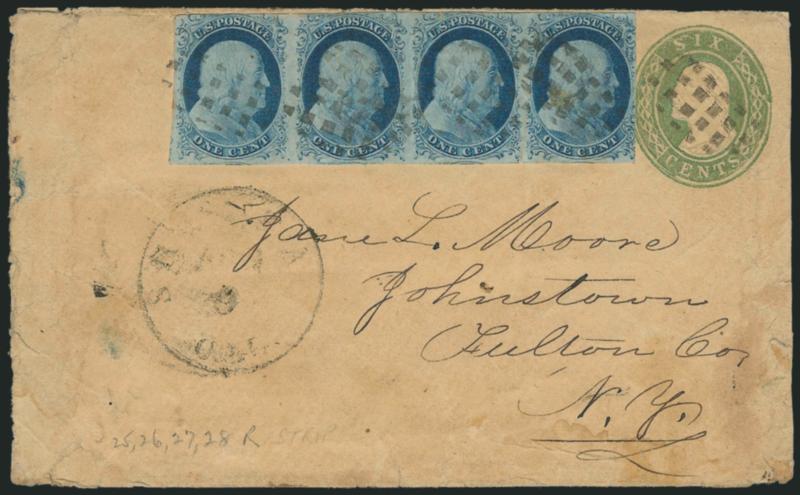 U.S. POSTAGE U.S. POSTAGE U.S. POSTAGE U.S. POSTAGE
ONE CENT ONE CENT ONE CENT ONE CENT
SIX
CENTS
Cal.
Jane L. Moore
Johnstown
Fulton Co,
N. Y.
25, 26, 27, 28 R STRIP